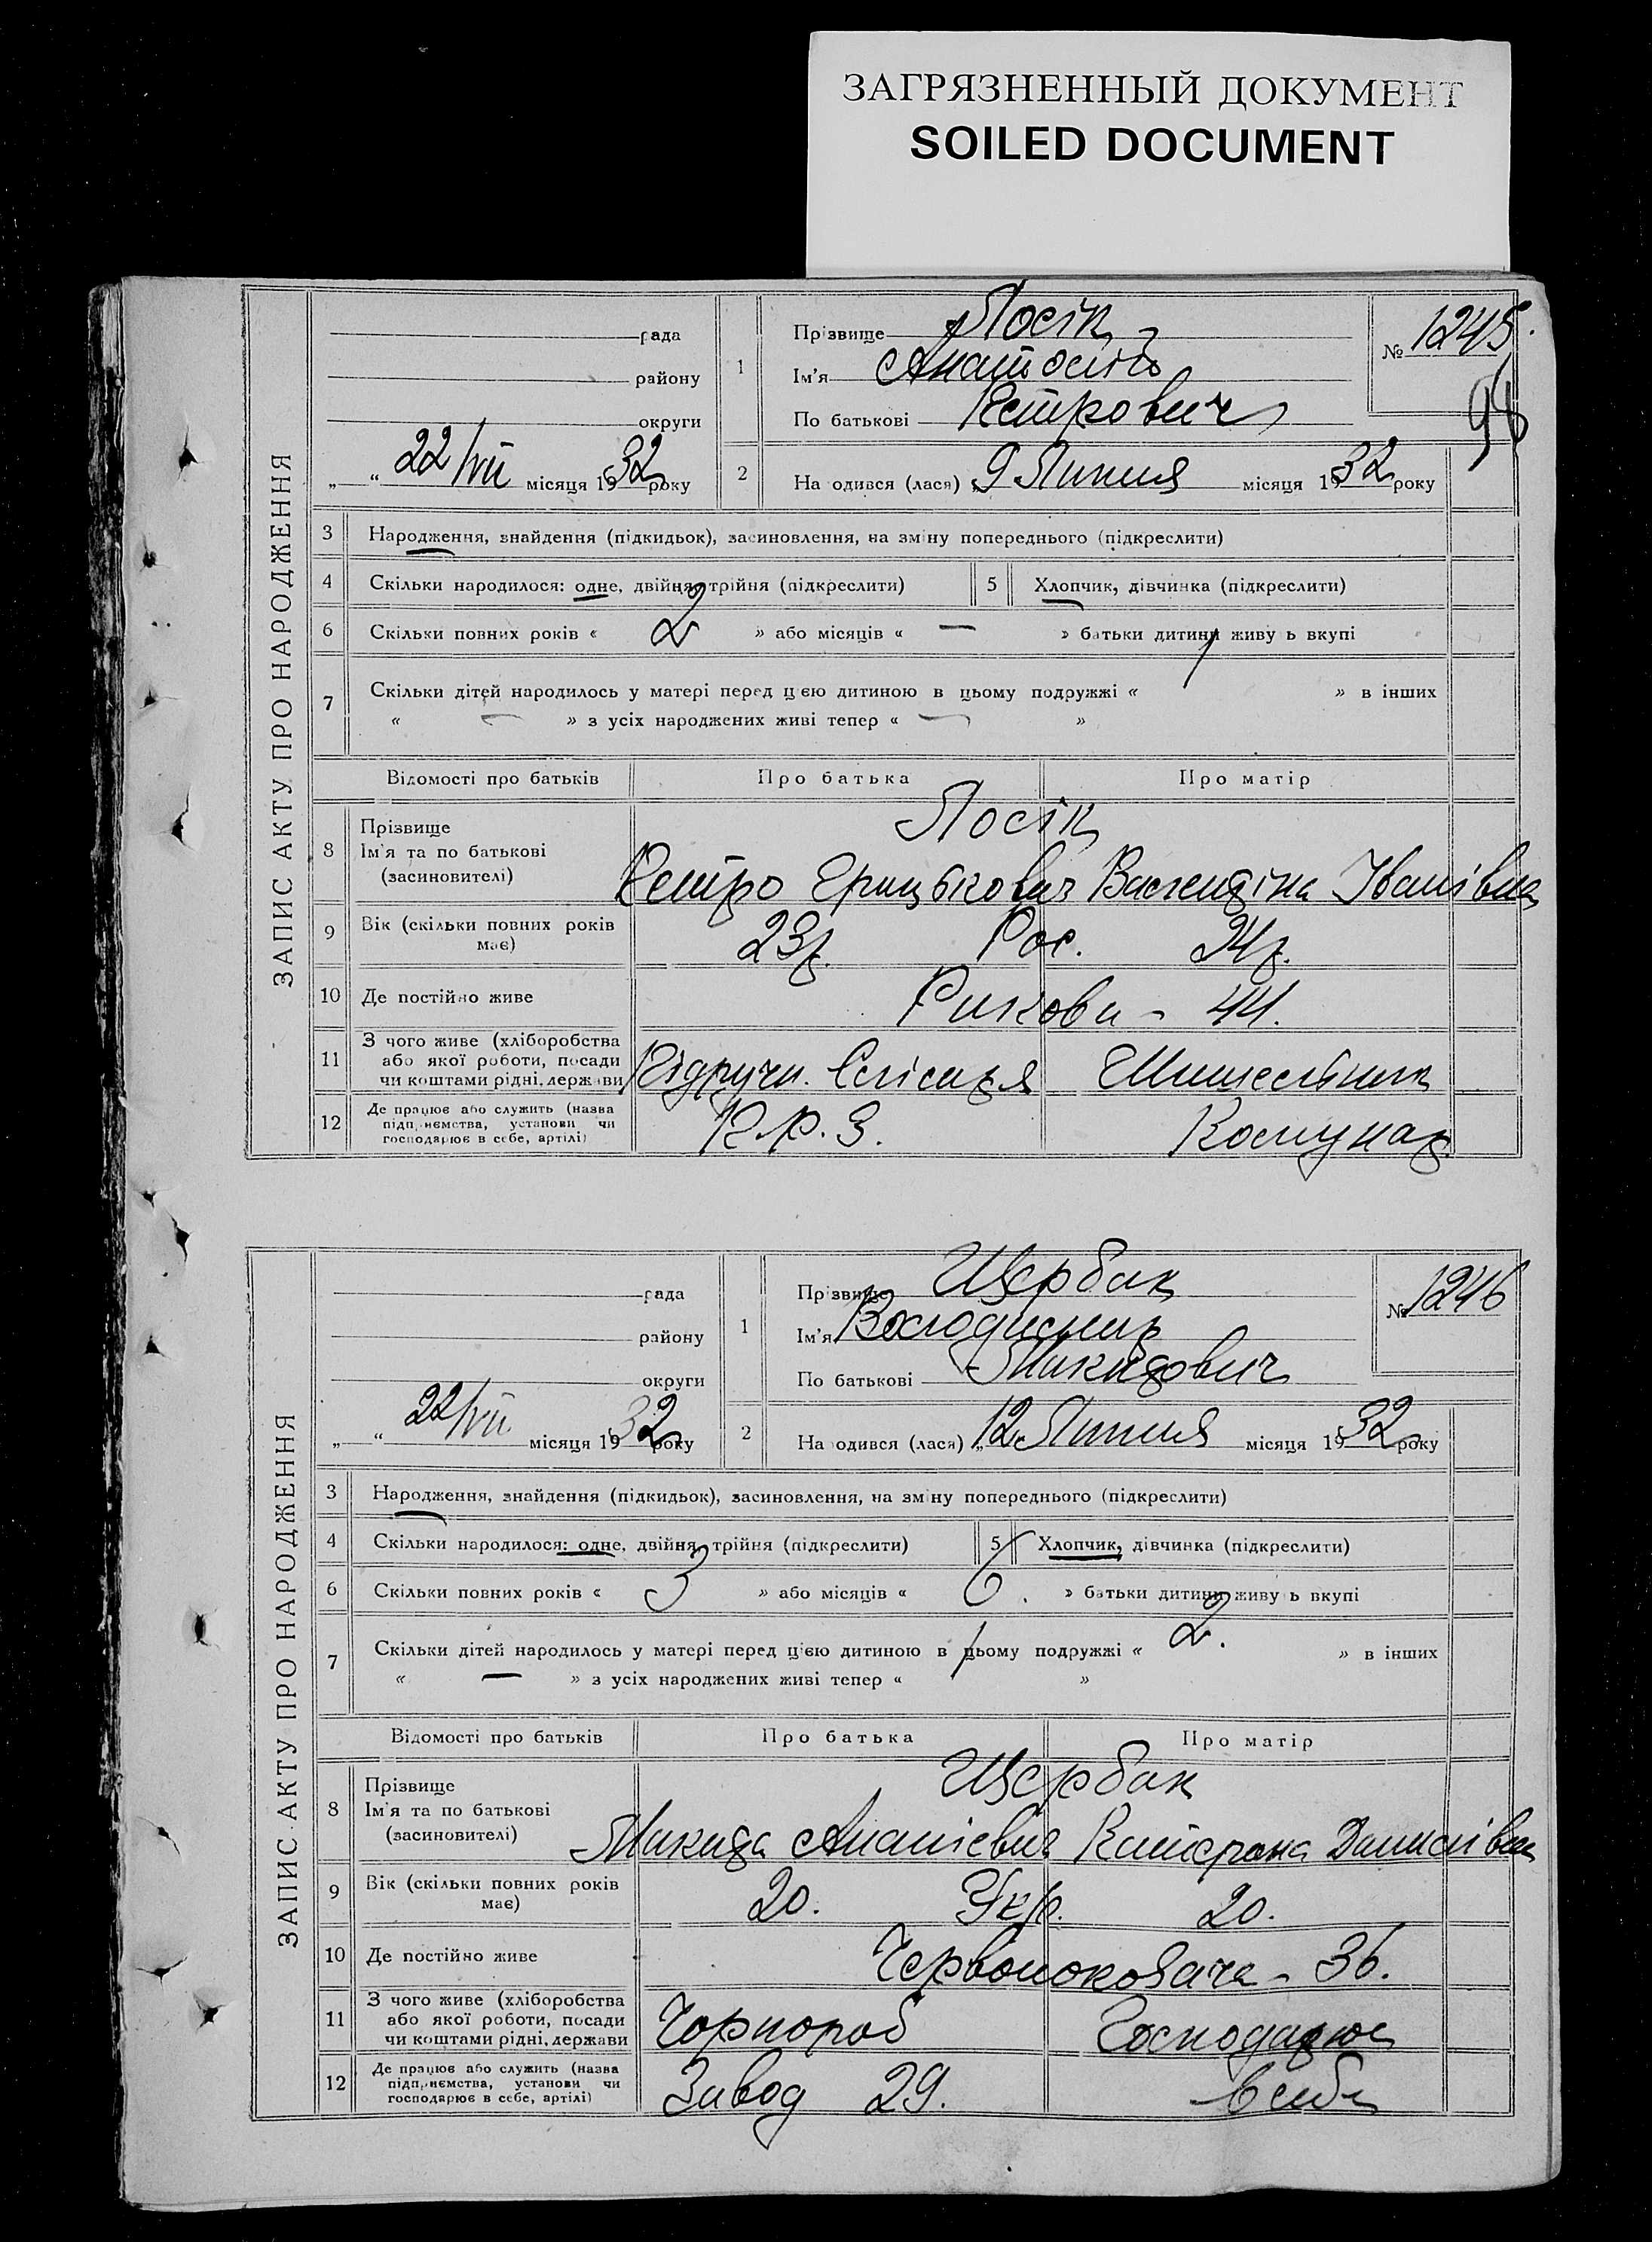 ЗАГРЯЗНЕННЫЙ ДОКУМЕНТ
SOILED DOCUMENT
ЗАПИС АКТУ ПРО НАРОДЖЕННЯ
рада
району
округи
„ “ 22/VII місяця 1932 року
1
Прізвище Лосік
Ім'я Анатолій
По батькові Петрович
№ 1245
98
2
На одився (лася) „ 9 Липня місяця 1932 року
3 Народження, знайдення (підкидьок), засиновлення, на зміну попереднього (підкреслити)
4 Скільки народилося: одне, двійня, трійня (підкреслити) 5 Хлопчик, дівчинка (підкреслити)
6 Скільки повних років « 2 » або місяців « — » батьки дитини живу ь вкупі
7 Скільки дітей народилось у матері перед цією дитиною в цьому подружжі « 1 » в інших
« — » з усіх народжених живі тепер « — »
Відомості про батьків Про батька Про матір
8 Прізвище Лосік
Ім'я та по батькові
(засиновителі)
Петро Грицькович Валендіна Іванівна
9 Вік (скільки повних років має) 23р. Рос. 24р.
10 Де постійно живе Рикова - 44.
11 З чого живе (хліборобства
або якої роботи, посади
чи коштами рідні, держави
Підручн. Слісаря
12 Де працює або служить (назва
підприємства, установи чи
господарює в себе, артілі)
К.Р.З. Комунар
ЗАПИС АКТУ ПРО НАРОДЖЕННЯ
рада
району
округи
„ “ 22/VII місяця 1932 року
1
Прізвище Щербак
Ім'я Володимир
По батькові Микидович
№ 1246
2
На одився (лася) „ 12 Липня місяця 1932 року
3 Народження, знайдення (підкидьок), засиновлення, на зміну попереднього (підкреслити)
4 Скільки народилося: одне, двійня, трійня (підкреслити) 5 Хлопчик, дівчинка (підкреслити)
6 Скільки повних років « 3 » або місяців « 6. » батьки дитини живу ь вкупі
7 Скільки дітей народилось у матері перед цією дитиною в цьому подружжі « 2. » в інших
« — » з усіх народжених живі тепер « 1 »
Відомості про батьків Про батька Про матір
8 Прізвище Щербак
Ім'я та по батькові
(засиновителі)
Микида Ананієвич Катерина Данилівна
9 Вік (скільки повних років має) 20. Укр. 20.
10 Де постійно живе Червонокозача - 36.
11 З чого живе (хліборобства
або якої роботи, посади
чи коштами рідні, держави
Чорнороб Господарює
12 Де працює або служить (назва
підприємства, установи чи
господарює в себе, артілі)
Завод 29. в себе